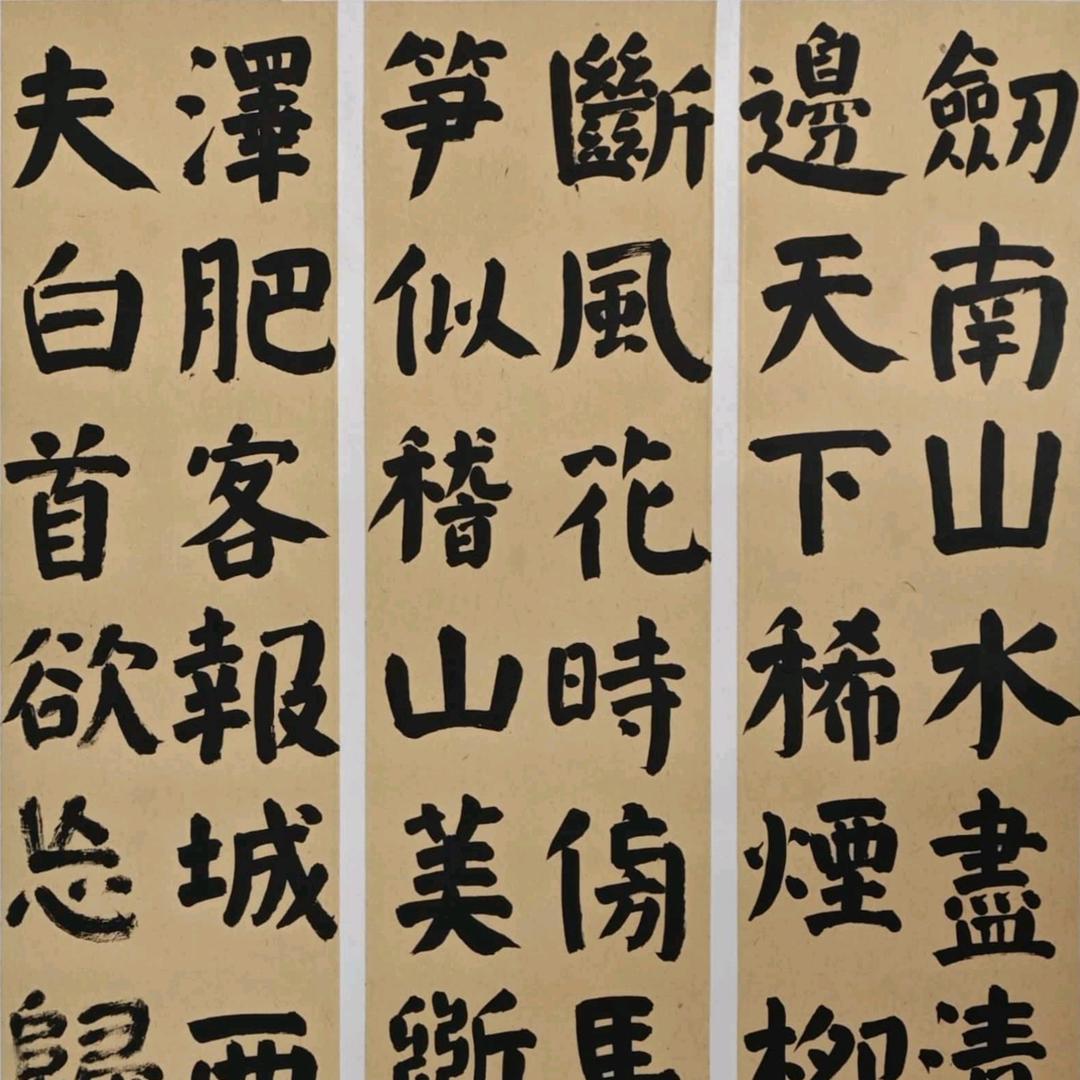 劒南山水盡清
邊天下稀煙柳
斷風花時傍馬
笋似稽山美斲
澤肥客報城西
夫白首欲忘歸